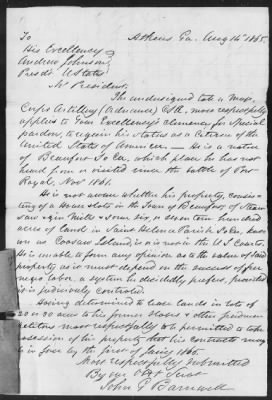 Athens Ga. Augt 14th 1865.
To
His Excellency
Andrew Johnson
Presdt. U States
Mr President.
The undersigned late a Major
Corps Artillery (Ordnance) CSA, most respectfully
applies to Your Excellency's clemency for Special
pardon, to regain his status as a Citizen of the
United States of America. — He is a native
of Beaufort So Ca, which place he has not
heard from or visited since the battle of Port
Royal, Novr 1861.
He is not aware whether his property, consis-
ting of a House & lots in the Town of Beaufort, of Steam
saw & gin Mills & some six, or seven hundred
acres of land in Saint Helena Parish So Ca, kno-
wn as Coosaw Island is or is not in the U S Courts.
He is unable to form any opinion as to the value of said
property as it must depend on the success of free
negro labor, a system he decidedly prefers, provided
it is judiciously controled.
Having determined to lease lands in lots of
20 or 30 acres to his former slaves & other freedmen
petitions most respectfully to be permitted to take
possession of his property that his contracts may
be in force by the first of Jany 1866.
Most respectfully submitted
By your Obt Servt
John G Barnwell